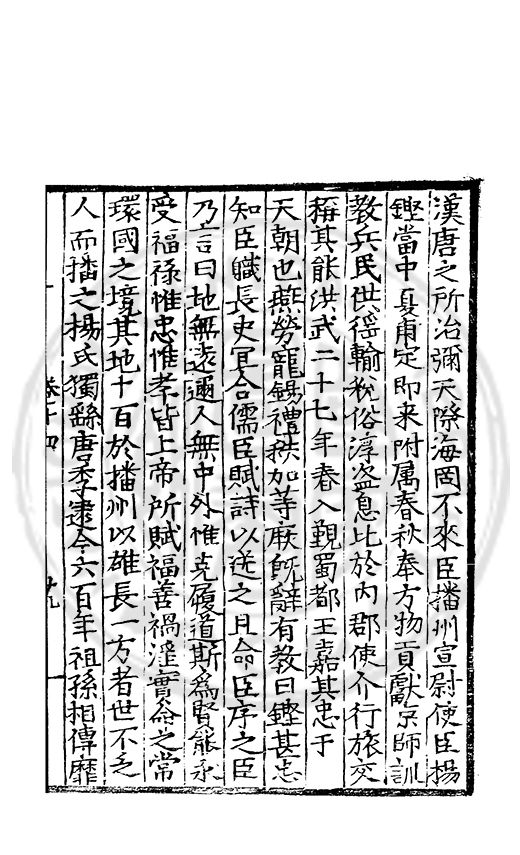 漢唐之所治彌天際海罔不來臣播州宣尉使臣楊
鏗當中夏甫定即来附属春秋奉方物貢獻京師訓
教兵民供徭輸税俗淳盗息比於内郡使介行旅交
稱其能洪武二十七年春入覲蜀都王嘉其忠于
天朝也燕勞寵錫禮秩加等庶既辭有教曰鏗甚忠
知臣職長史冝合儒臣賦詩以送之且命臣序之臣
乃言曰地無遠邇人無中外惟克履道斯爲賢能永
受福祿惟忠惟孝皆上帝所賦福善禍滛實命之常
環國之境其地十百於播州以雄長一方者世不乏
人而播之楊氏獨繇唐季逮今六百年祖孫相傳靡
卷十四
十九